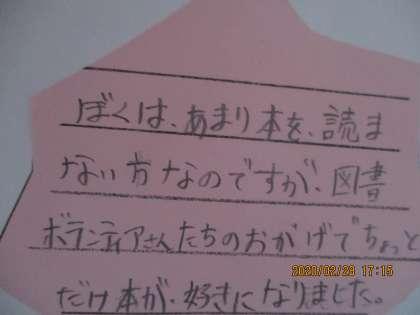 ぼくは、あまり本を、読ま
ない方なのですが、図書
ボランティアさんたちのおかげでちょっと
だけ本が、好きになりました。
2020/02/28 17:15